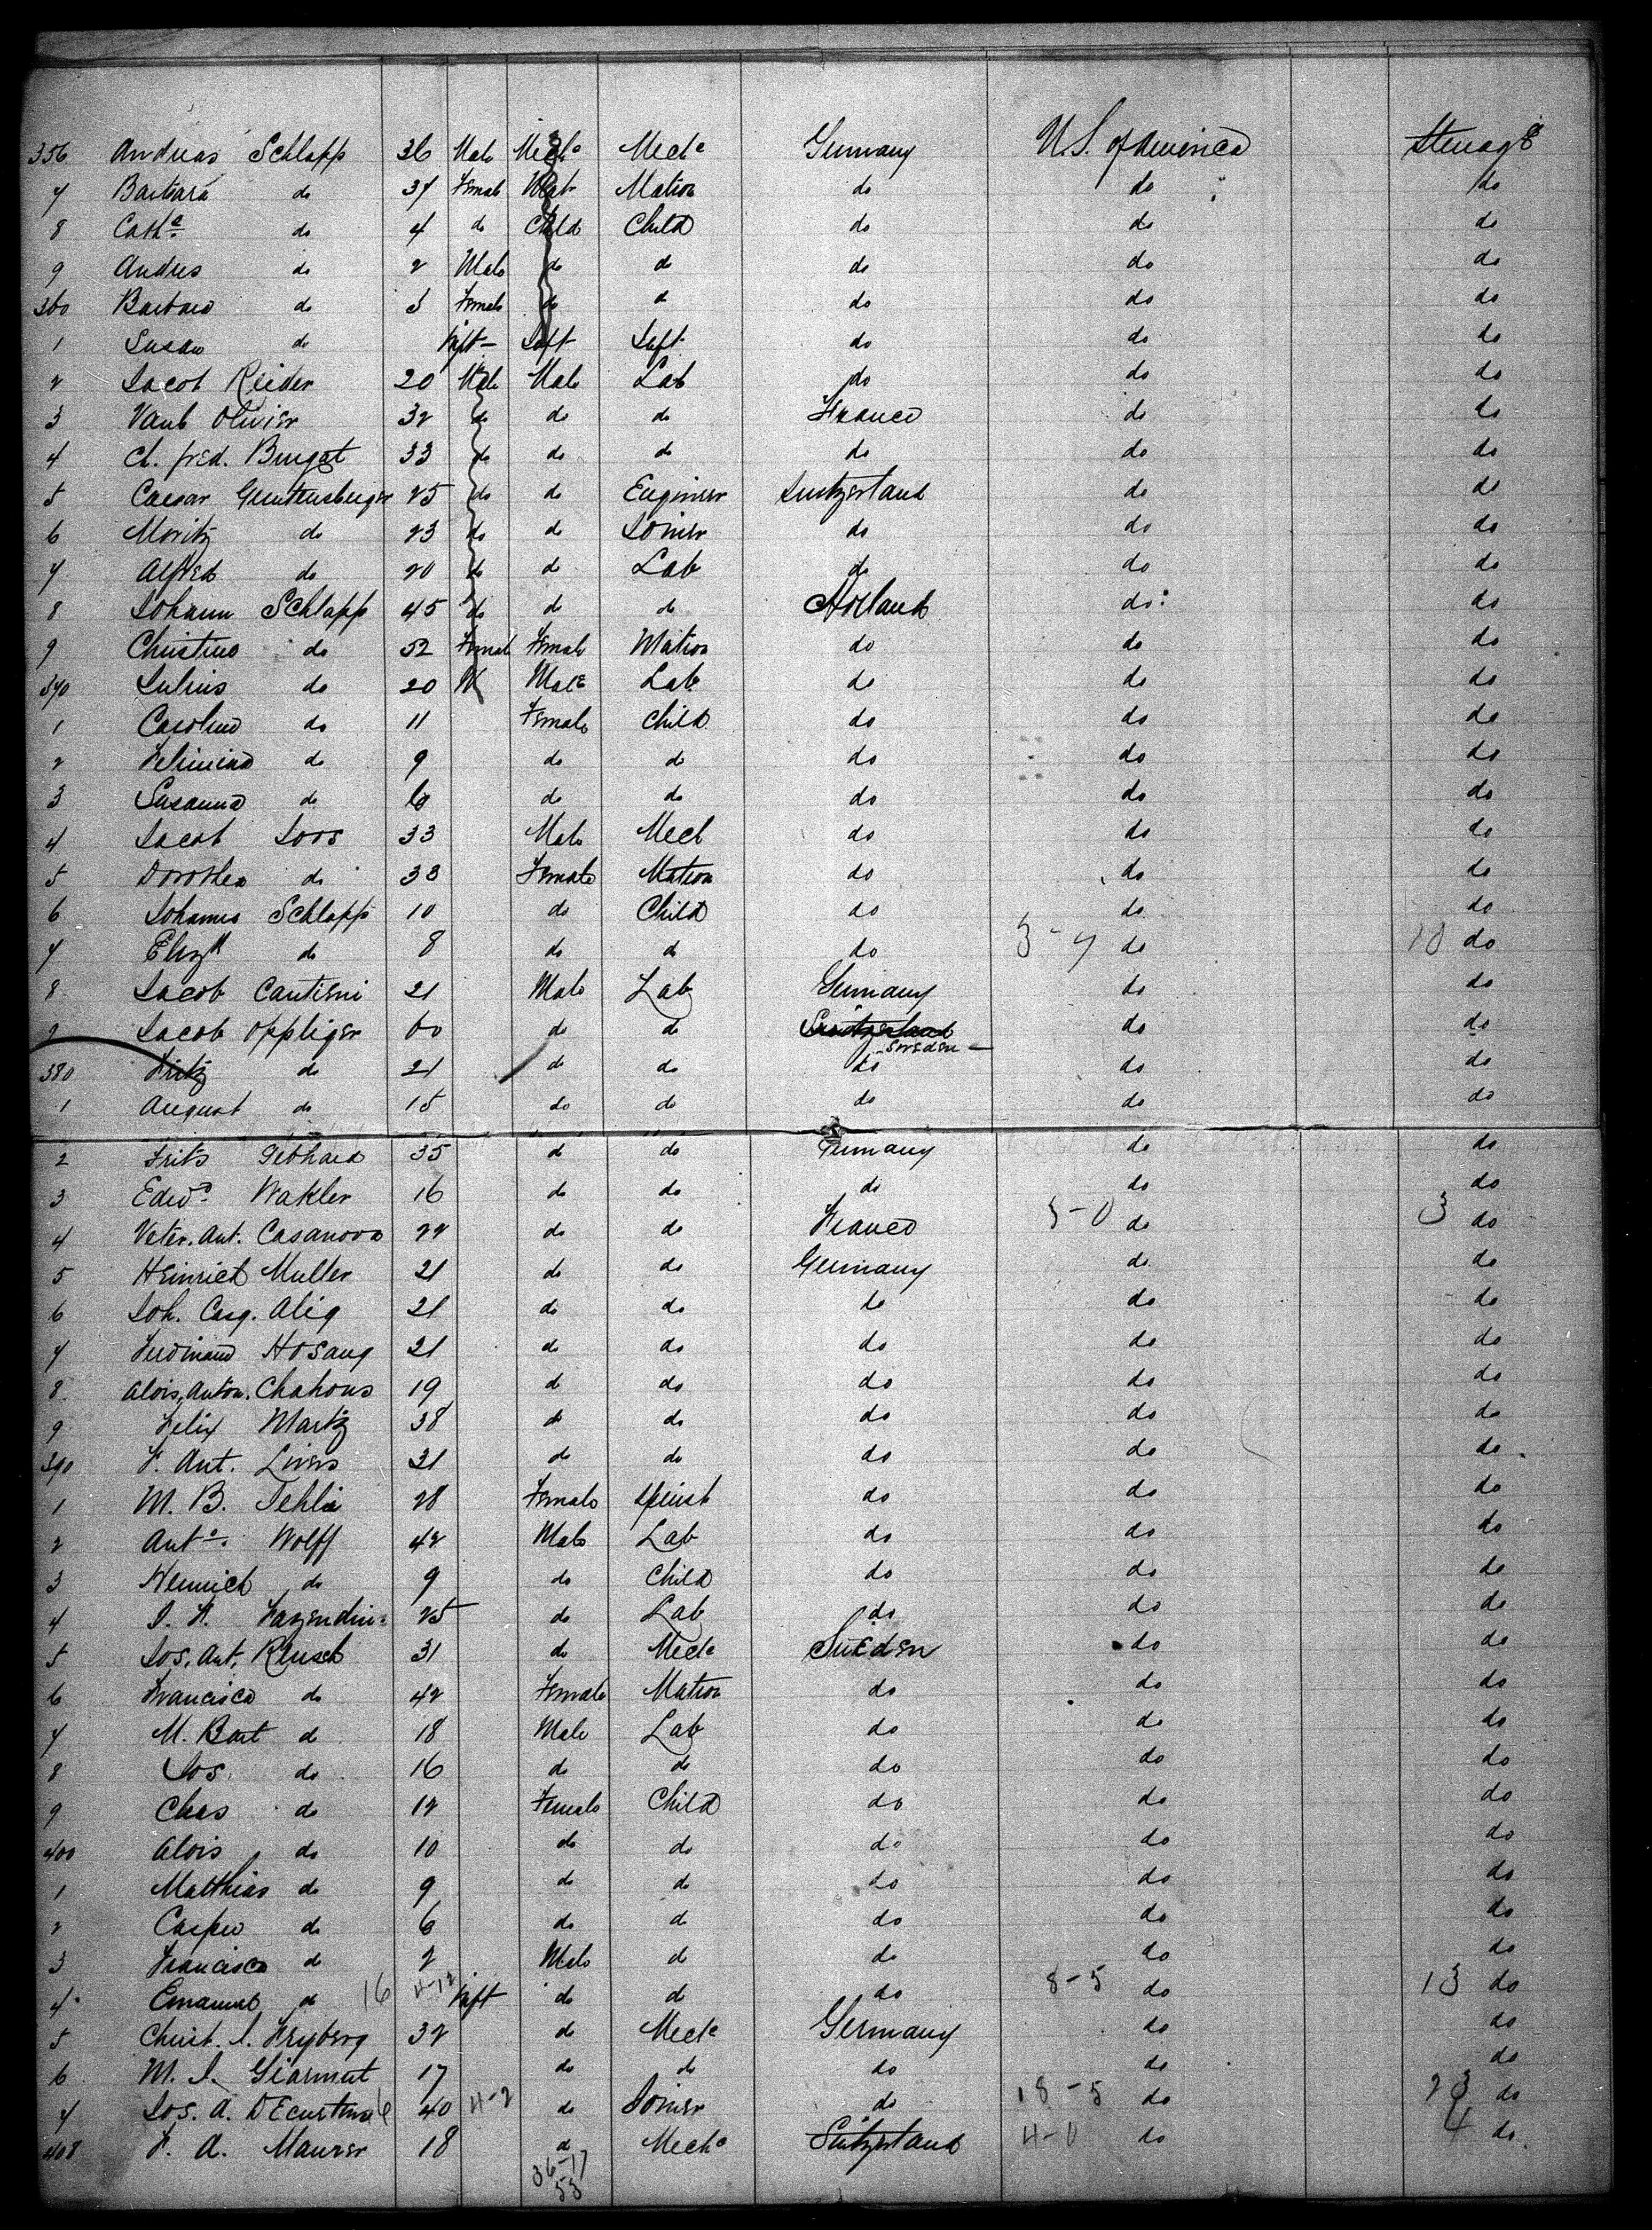 356 Andreas Schlapp 36 Male Mech Mech Germany U.S. of America Steerage
7 Barbara do 34 Female Matron do do do
8 Cath do 4 do Child Child do do do
9 Andres do 2 Male do do do do do
360 Barbara do 3 Female do do do do do
1 Susan do Inft Inft Inft do do do
2 Jacob Reider 20 Male Male Lab do do do
3 Olivier 32 do do do France do do
4 Ch. fred. Burgat 33 do do do do do do
5 Caesar 25 do do Engineer Switzerland do do
6 Moritz do 23 do do Joiner do do do
7 Alfred do 20 do do Lab do do do
8 Johann Schlapp 45 do do do Holland do do
9 Christine do 52 Female Female Matron do do do
370 Julius do 20 M Male Lab do do do
1 Caroline do 11 Female Child do do do
2 do 9 do do do do do
3 Susanna do 6 do do do do do
4 Jacob Loos 33 Male Mech do do do
5 Dorothea do 33 Female Matron do do do
6 Johannes Schlapp 10 do Child do do do
7 Elizth do 8 do do do 3-7 do 10 do
8 Jacob Cantieni 21 Male Lab Germany do do
9 Jacob Oppliger 60 do do Switzerland do do
Sweden
380 Fritz do 21 do do do do do
1 August do 15 do do do do do
2 Fritz Gebhard 35 do do Germany do do
3 Edwd Wakler 16 do do do do do
4 Peter. Ant. Casanova 22 do do France 3-0 do 3 do
5 Heinrich Muller 21 do do Germany do do
6 Joh. Casp. Alig 21 do do do do do
7 Ferdinand Hosang 21 do do do do do
8 Alois, Anton. 19 do do do do do
9 Felix Martz 38 do do do do do
390 F. Ant. Livers 31 do do do do do
1 M. B. 28 Female Spinst do do do
2 Ant. Wolff 42 Male Lab do do do
3 Heinrich do 9 do Child do do do
4 J. F. 25 do Lab do do do
5 Jos. Ant. 31 do Mech Sweden do do
6 Francisca do 42 Female Matron do do do
7 M. Bart do 18 Male Lab do do do
8 Jos. do 16 do do do do do
9 Chas do 12 Female Child do do do
400 Alois do 10 do do do do do
1 Matthias do 9 do do do do do
2 Casper do 6 do do do do do
3 Francisca do 2 Male do do do do
4 Emanuel do 16 4-12 Inft do do do 8-5 do 13 do
5 Christ. J. Fryberg 32 do Mech Germany do do
6 M. J. 17 do do do do do
7 Jos. A. 6 40 4-2 do Joiner do 18-5 do 23 do
408 F. A. Maurer 18 do Mech Switzerland 4-0 do 4 do
36-17
53